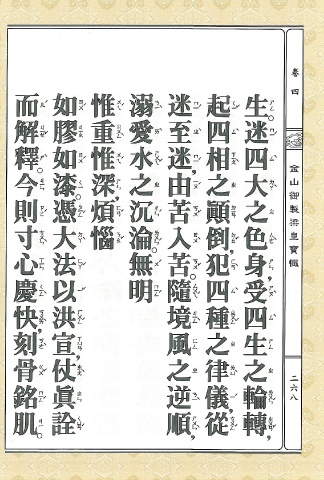 卷四
金山御製梁皇寶懺
二六八
生。迷四大之色身，受四生之輪轉，
起四相之顛倒，犯四種之律儀，從
迷至迷，由苦入苦。隨境風之逆順，
溺愛水之沉淪。無明
惟重惟深，煩惱
如膠如漆。憑大法以洪宣，仗眞詮
而解釋。今則寸心慶快，刻骨銘肌。